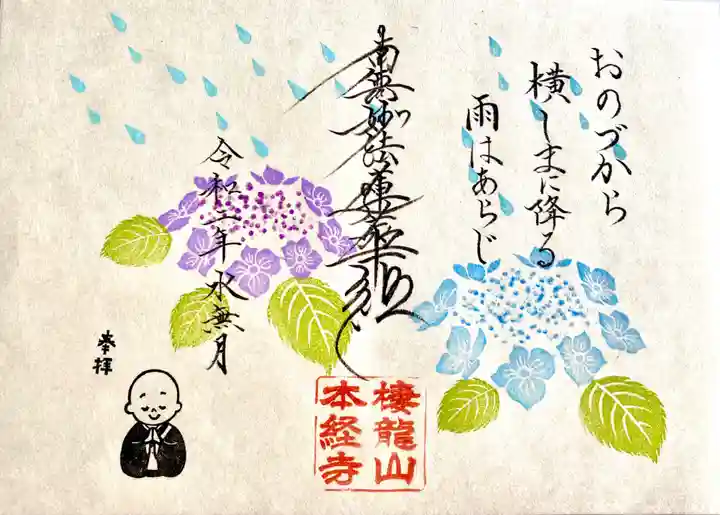 おのづから
横しまに降る
雨はあらじ
南無妙法蓮華経
令和二年水無月
奉拝
棲龍山
本経寺